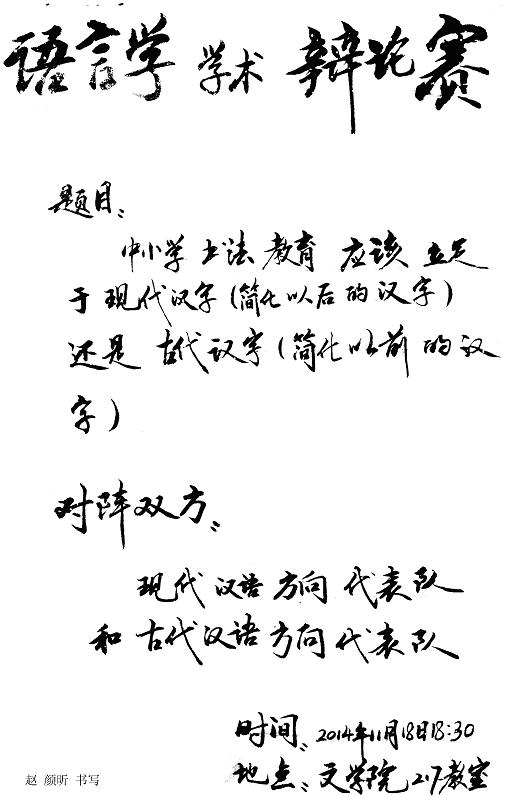 语言学 学术 辩论赛
题目：
中小学书法教育 应该 立足
于现代汉字(简化以后的汉字)
还是 古代汉字(简化以前的汉
字)
对阵双方：
现代汉语方向 代表队
和古代汉语方向代表队
时间：2014年11月18日18:30
地点：文学院 217教室
赵 颜昕 书写